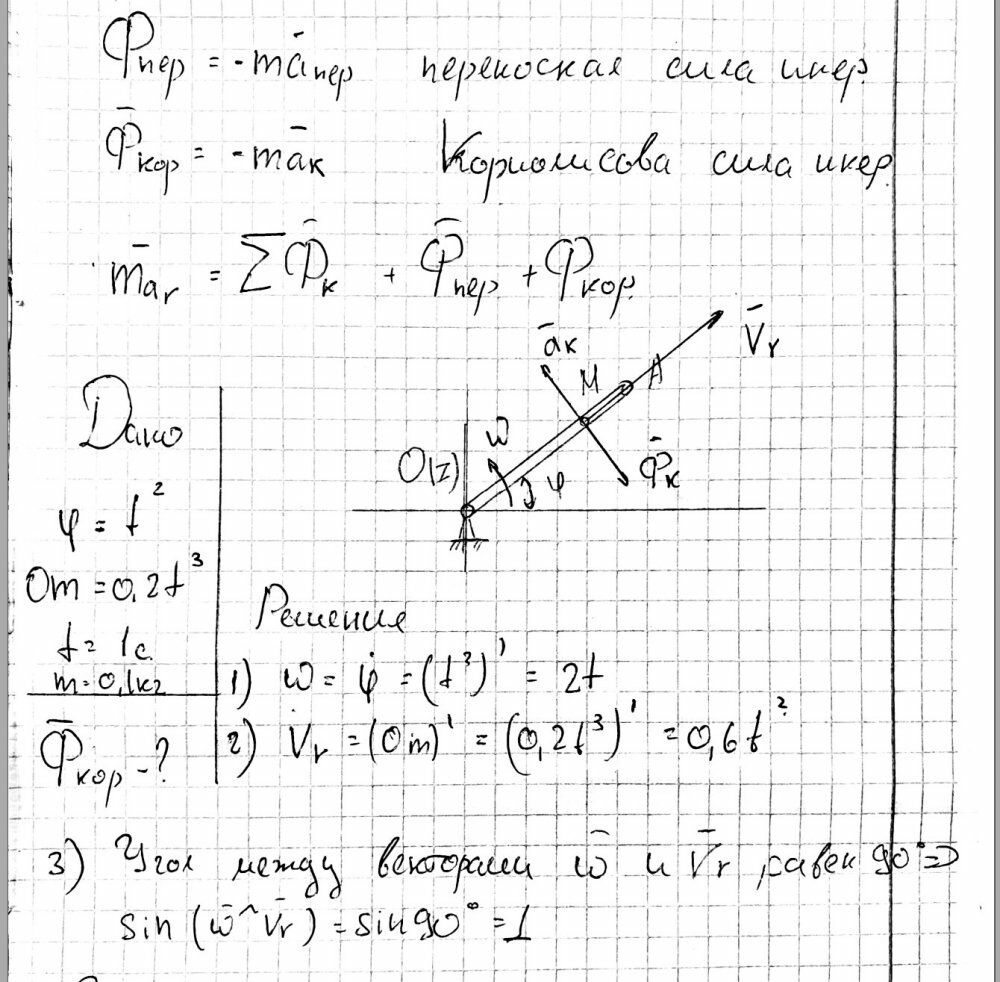 Φ̄пер = -māпер переносная сила инер.
Φ̄кор = -māк Кориолисова сила инер.
mār = ΣΦ̄к + Φ̄пер + Φкор.
āк M A V̄r
O(z) ω φ Φ̄к
Дано
φ = t²
Om = 0,2t³
t = 1c.
m = 0,1кг
Φ̄кор - ?
Решения
1) ω = φ̇ = (t²)' = 2t
2) Vr = (Om)' = (0,2t³)' = 0,6t²
3) Угол между векторами ω̄ и V̄r, равен 90° =>
sin (ω̄^V̄r) = sin90° = 1